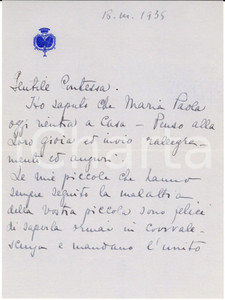 15. III. 1935
Gentile Contessa.
Ho saputo che Maria Paola
oggi rientra a Casa - Penso alla
Loro gioia ed invio rallegra-
menti ed auguri.
Le mie piccole che hanno
sempre seguito la malattia
della Vostra piccola sono felici
di saperla ormai in convale-
scenza e mandano l'unito